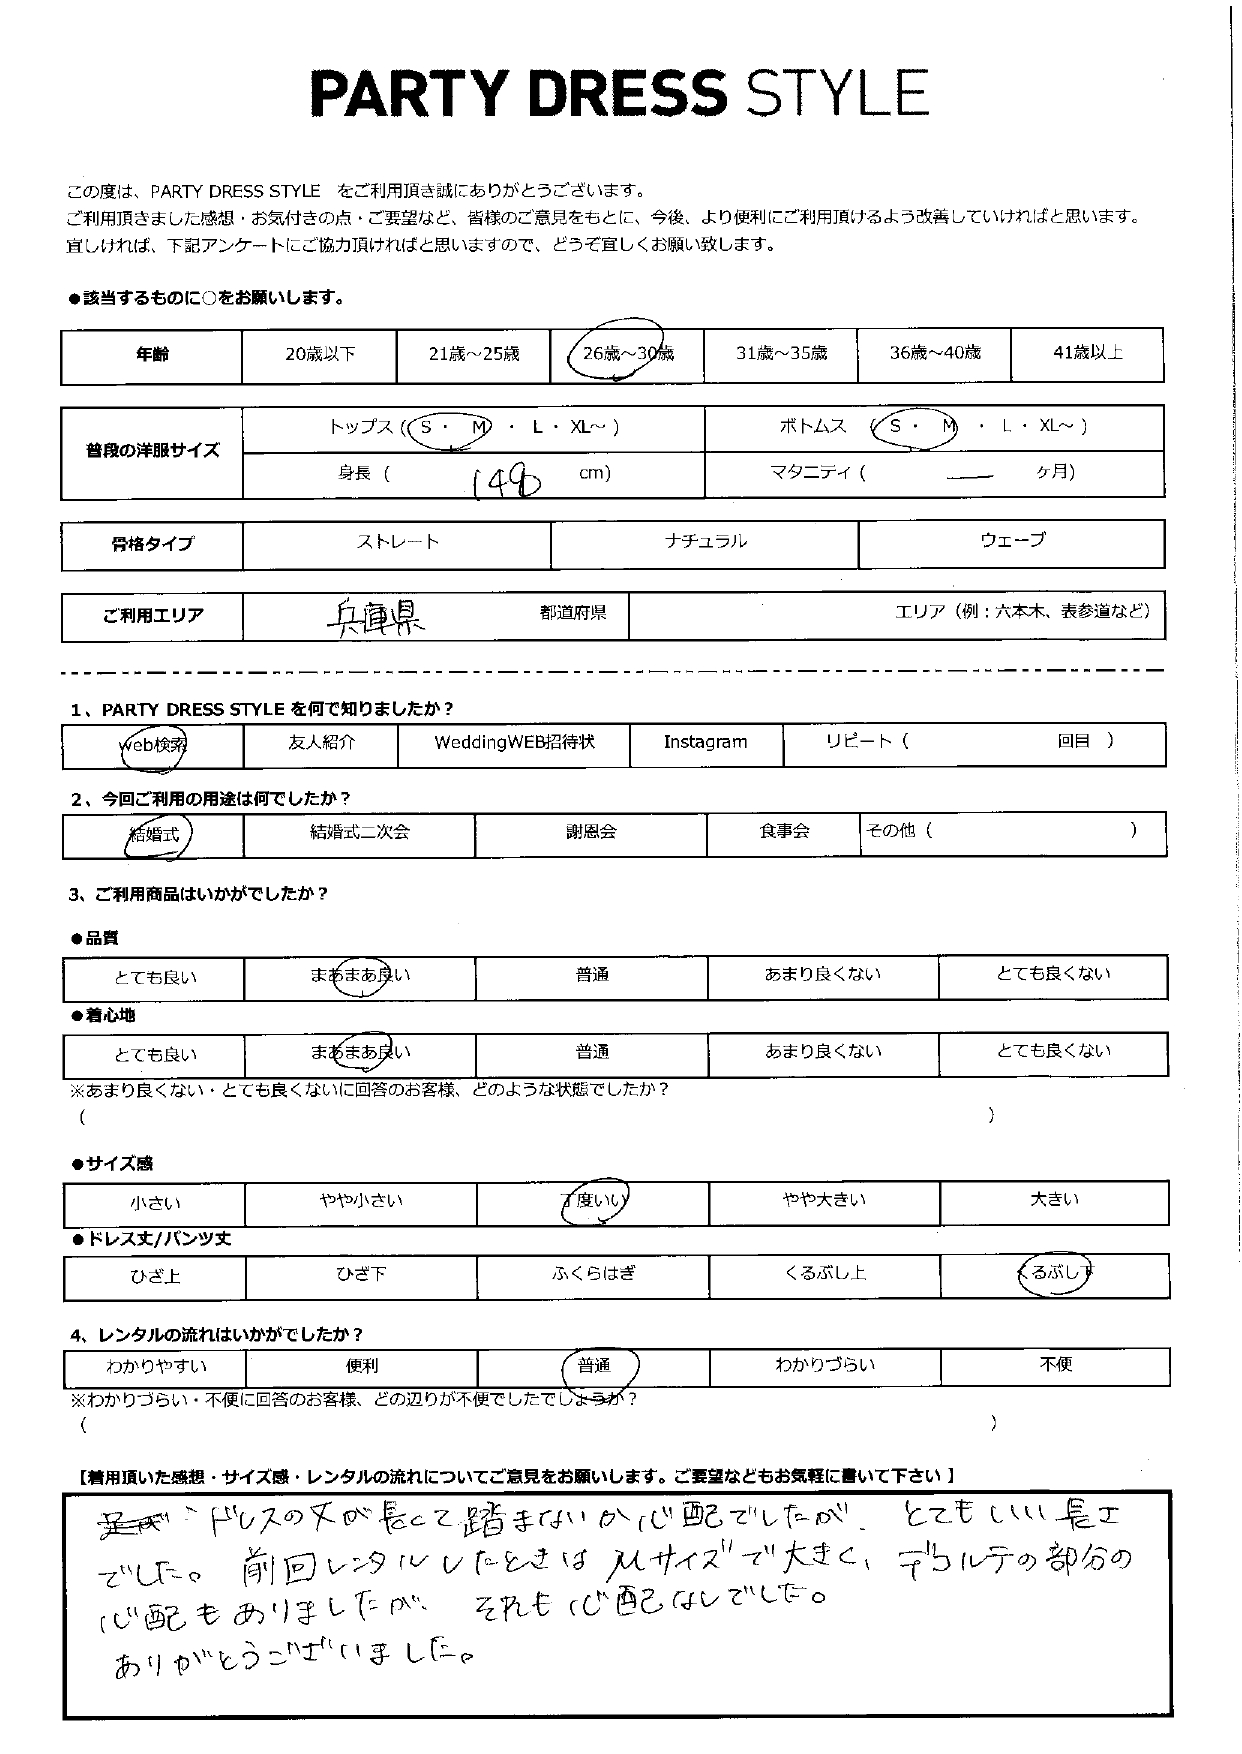 PARTY DRESS STYLE
この度は、PARTY DRESS STYLE をご利用頂き誠にありがとうございます。
ご利用頂きました感想・お気付きの点・ご要望など、皆様のご意見をもとに、今後、より便利にご利用頂けるよう改善していければと思います。
宜しければ、下記アンケートにご協力頂ければと思いますので、どうぞ宜しくお願い致します。
●該当するものに○をお願いします。
年齢 20歳以下 21歳～25歳 26歳～30歳 31歳～35歳 36歳～40歳 41歳以上
普段の洋服サイズ トップス(S・M・L・XL～) ボトムス (S・M・L・XL～)
身長 ( 148 cm) マタニティ ( — ヶ月)
骨格タイプ ストレート ナチュラル ウェーブ
ご利用エリア 兵庫県 都道府県 エリア（例：六本木、表参道など）
1、PARTY DRESS STYLE を何で知りましたか？
web検索 友人紹介 WeddingWEB招待状 Instagram リピート ( 回目 )
2、今回ご利用の用途は何でしたか？
結婚式 結婚式二次会 謝恩会 食事会 その他 ( )
3、ご利用商品はいかがでしたか？
●品質
とても良い まあまあ良い 普通 あまり良くない とても良くない
●着心地
とても良い まあまあ良い 普通 あまり良くない とても良くない
※あまり良くない・とても良くないに回答のお客様、どのような状態でしたか？
( )
●サイズ感
小さい やや小さい 丁度いい やや大きい 大きい
●ドレス丈/パンツ丈
ひざ上 ひざ下 ふくらはぎ くるぶし上 くるぶし下
4、レンタルの流れはいかがでしたか？
わかりやすい 便利 普通 わかりづらい 不便
※わかりづらい・不便に回答のお客様、どの辺りが不便でしたでしょうか？
( )
【着用頂いた感想・サイズ感・レンタルの流れについてご意見をお願いします。ご要望などもお気軽に書いて下さい】
ドレスの丈が長くて踏まないか心配でしたが、とてもいい長さ
でした。前回レンタルしたときはMサイズで大きく、デコルテの部分の
心配もありましたが、それも心配なしでした。
ありがとうございました。